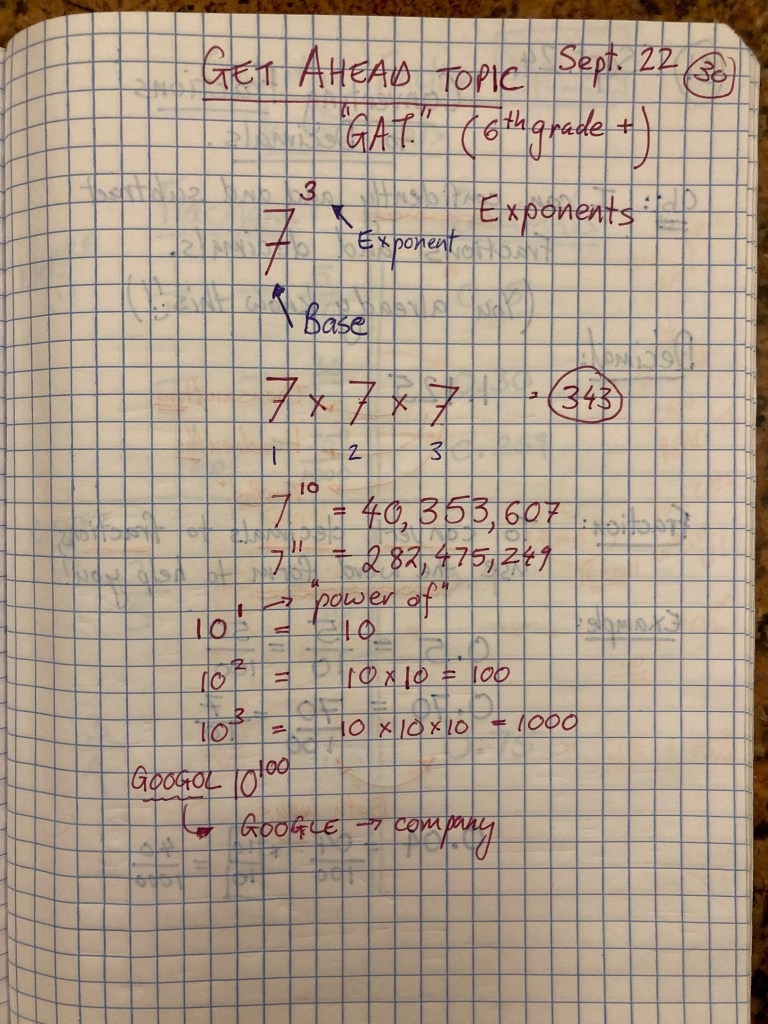 GET AHEAD TOPIC Sept. 22 30
"GAT." (6th grade +)
7³ Exponents
Exponent
Base
7 × 7 × 7 = 343
1 2 3
7¹⁰ = 40,353,607
7¹¹ = 282,475,249
→ "power of"
10¹ = 10
10² = 10×10 = 100
10³ = 10×10×10 = 1000
GOOGOL 10¹⁰⁰
↳ GOOGLE → company